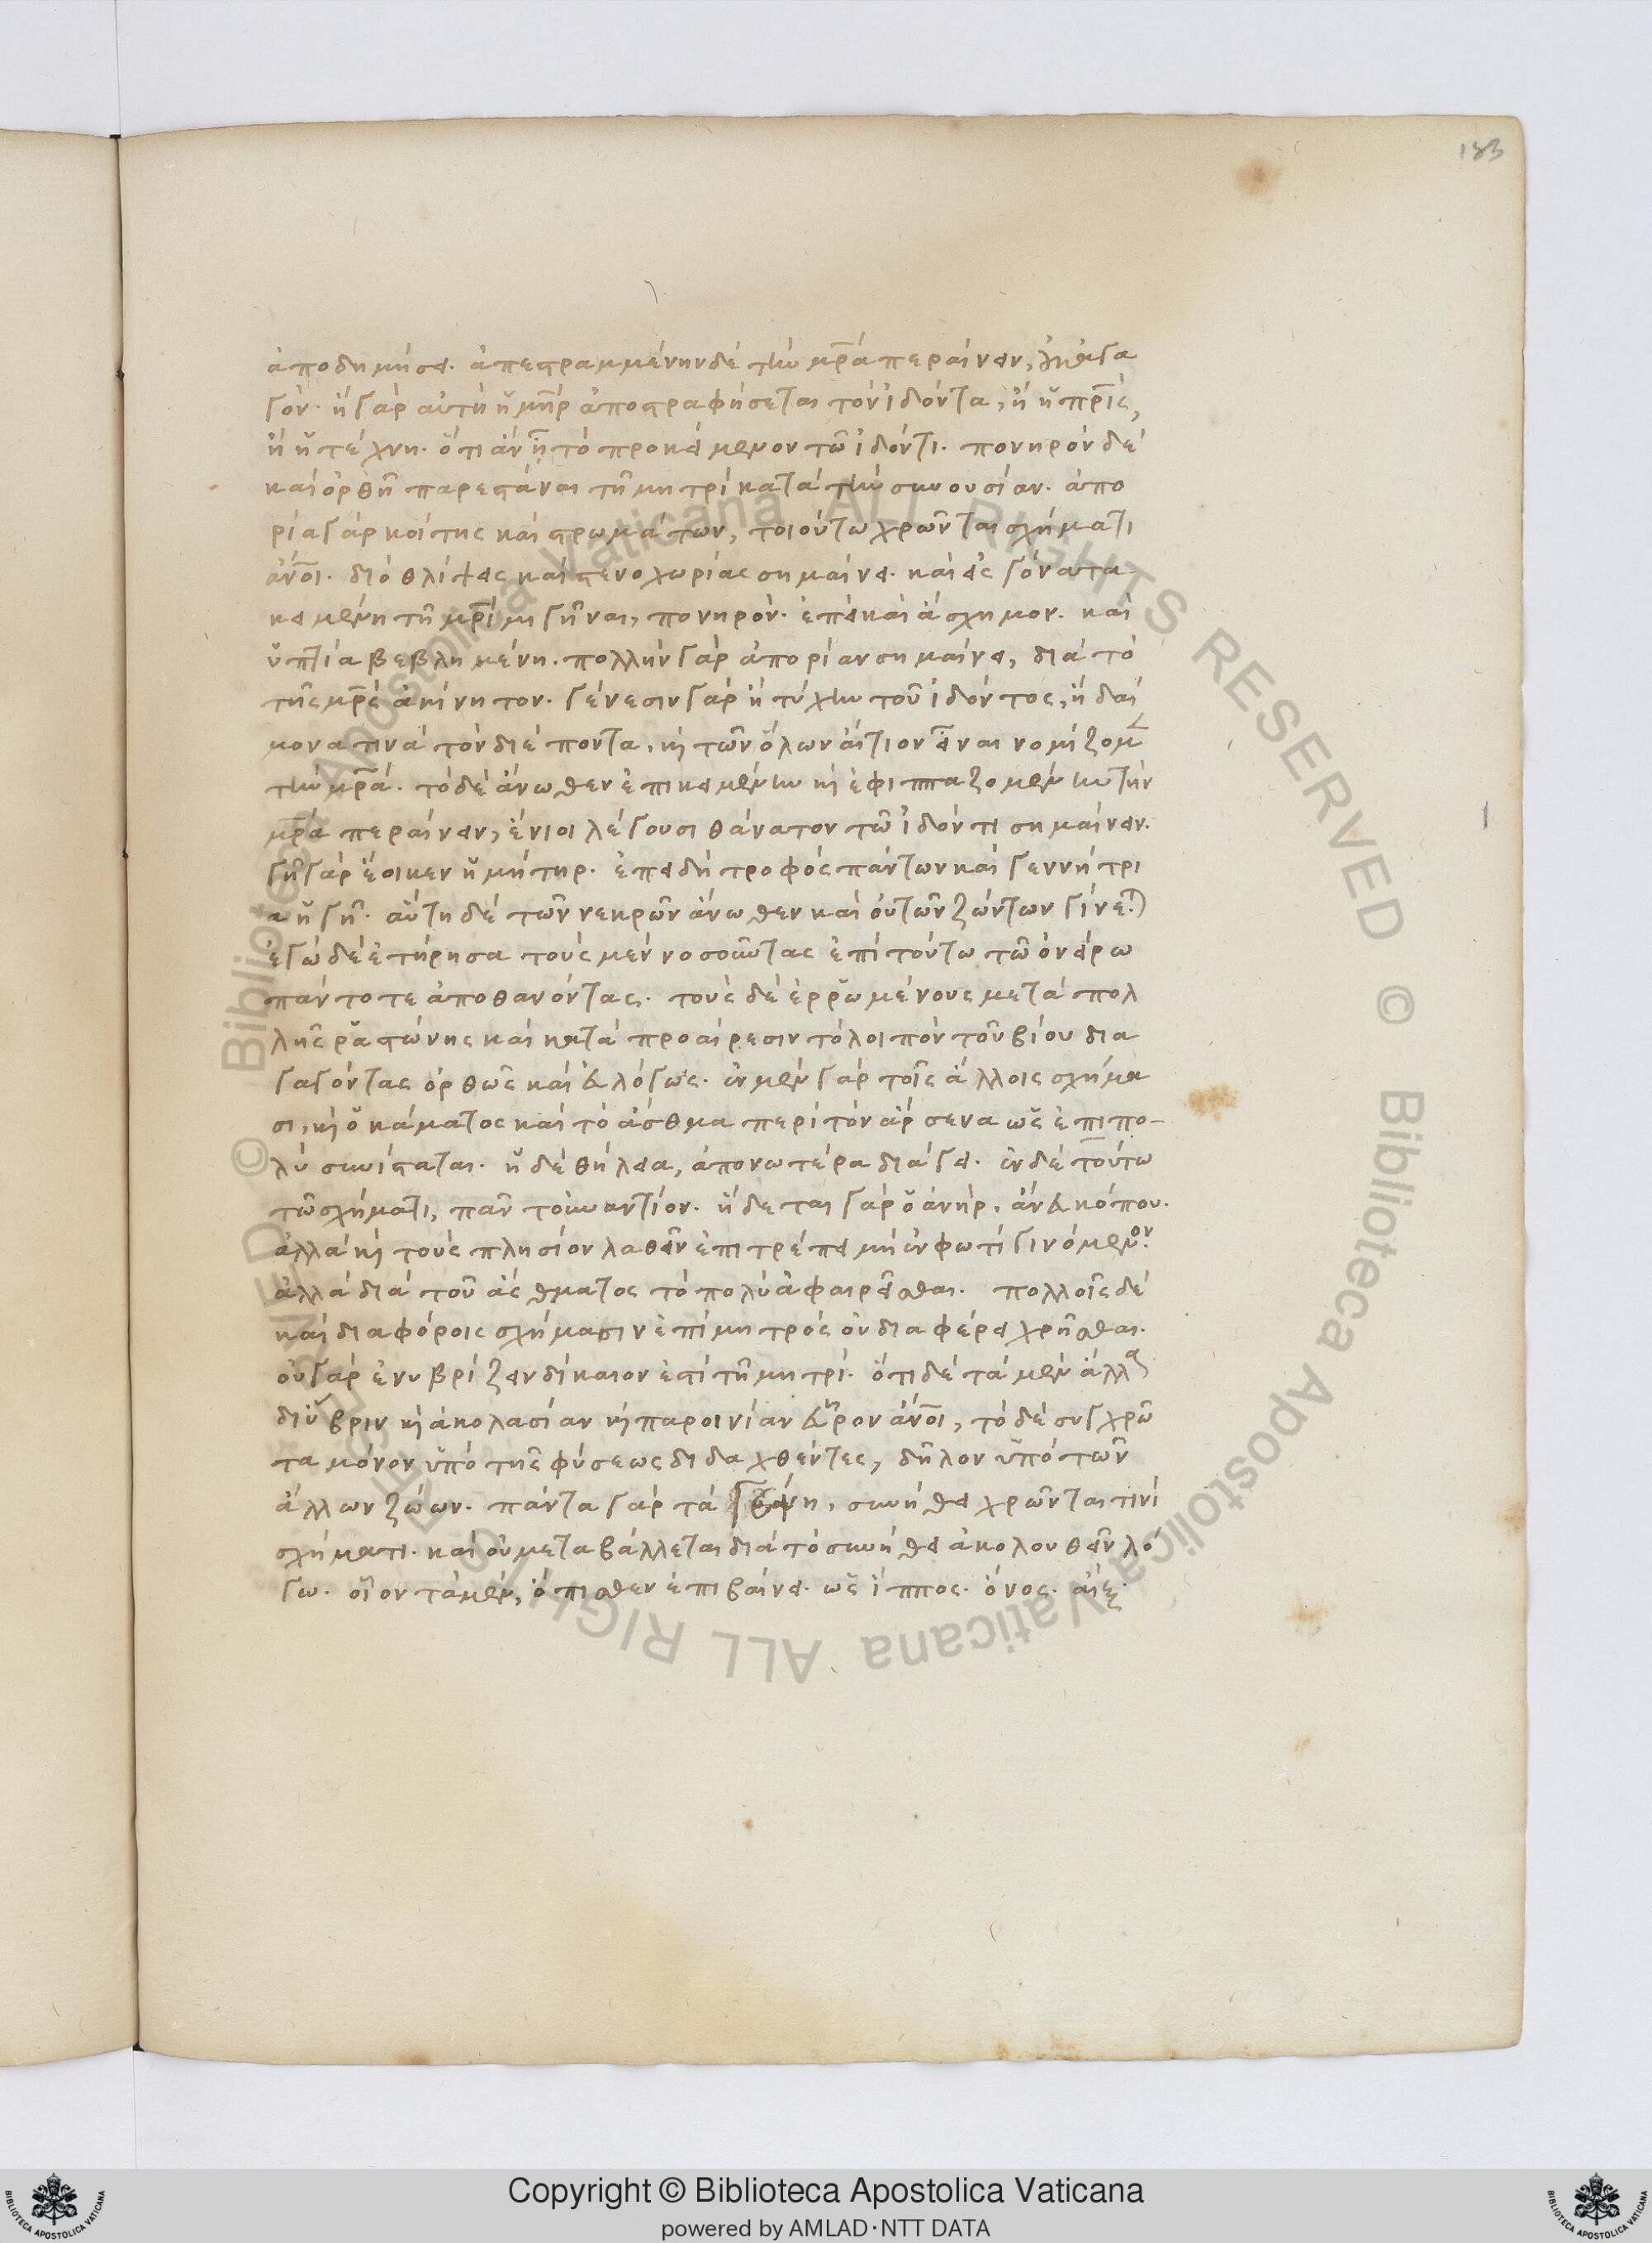 183
ἀποδημήσει. ἀπεστραμμένην δὲ τὴν μρ̅α περαίνειν, οὐκ ἀγα
θόν. ἢ γὰρ αὐτὴ ἡ μη̅ρ ἀποστραφήσεται τὸν ἰδόντα, ἢ ἡ πρ̅ὶς,
ἢ ἡ τέχνη. ὅτι ἂν ᾖ τὸ προκείμενον τῶ ἰδόντι. πονηρὸν δὲ
καὶ ὀρθῆ παρεστάναι τῆ μητρὶ κατὰ τὴν συνουσίαν. ἀπο
ρία γὰρ κοίτης καὶ στρωμάτων, τοιούτω χρῶνται σχήματι
ἄν̅οι. διὸ θλίψεις καὶ στενοχωρίας σημαίνει. καὶ εἰς γόνατα
κειμένη τῆ μρ̅ὶ μιγῆναι, πονηρόν. ἐπεὶ καὶ ἄσχημον. καὶ
ὑπτία βεβλημένη. πολλὴν γὰρ ἀπορίαν σημαίνει, διὰ τὸ
τῆς μρ̅ς ἀκίνητον. γένεσιν γὰρ ἢ τύχην τοῦ ἰδόντος, ἢ δαί
μονα τινὰ τὸν διέποντα, κὶ τῶν ὅλων αἴτιον εἶναι νομίζομ
τὴν μρ̅α. τὸ δὲ ἄνωθεν ἐπικειμένην κὶ ἐφιππαζομένην τὴν
μρ̅α περαίνειν, ἔνιοι λέγουσι θάνατον τῶ ἰδόντι σημαίνειν.
γῆ γὰρ ἔοικεν ἡ μήτηρ. ἐπειδὴ τροφὸς πάντων καὶ γεννήτρι
α ἡ γῆ. αὕτη δὲ τῶν νεκρῶν ἄνωθεν καὶ οὐ τῶν ζώντων γίνε.
ἐγὼ δὲ ἐτήρησα τοὺς μὲν νοσοῦντας ἐπὶ τούτω τῶ ὀνείρω
πάντοτε ἀποθανόντας. τοὺς δὲ ἐρρωμένους μετὰ πολ
λῆς ῥαστώνης καὶ κατὰ προαίρεσιν τὸ λοιπὸν τοῦ βίου δια
γαγόντας ὀρθῶς καὶ εὐλόγως. ἐν μὲν γὰρ τοῖς ἄλλοις σχήμα
σι, κὶ ὁ κάματος καὶ τὸ ἆσθμα περὶ τὸν ἄρσενα ὡς ἐπιπο-
λὺ συνίσταται. ἡ δὲ θήλεια, ἀπονωτέρα διάγει. ἐν δὲ τούτω
τῶ σχήματι, πᾶν τοὐναντίον. ἥδεται γὰρ ὁ ἀνὴρ, ἄνευ κόπου.
ἀλλὰ κὶ τοὺς πλησίον λαθεῖν ἐπιτρέπει μὴ ἐν φωτὶ γινόμενον.
ἀλλὰ διὰ τοῦ ἄσθματος τὸ πολὺ ἀφαιρεῖσθαι. πολλοῖς δὲ
καὶ διαφόροις σχήμασιν ἐπὶ μητρὸς οὐ διαφέρει χρῆσθαι.
οὐ γὰρ ἐνυβρίζειν δίκαιον ἐστὶ τῆ μητρί. ὅτι δὲ τὰ μὲν ἄλλα
δι ὕβριν κὶ ἀκολασίαν κὶ παροινίαν εὗρον ἄν̅οι, τὸ δὲ συγχρῶ
τα μόνον ὑπὸ τῆς φύσεως διδαχθέντες, δῆλον ὑπὸ τῶν
ἄλλων ζώων. πάντα γὰρ τὰ γένη, συνήθει χρῶνται τινὶ
σχήματι. καὶ οὐ μεταβάλλεται διὰ τὸ συνήθει ἀκολουθεῖν λό
γω. οἷον τὰ μὲν, ὄπισθεν ἐπιβαίνει. ὡς ἵππος. ὄνος. αἴξ.
© Biblioteca Apostolica Vaticana ALL RIGHTS RESERVED
Copyright © Biblioteca Apostolica Vaticana
powered by AMLAD·NTT DATA
BIBLIOTECA APOSTOLICA VATICANA
BIBLIOTECA APOSTOLICA VATICANA